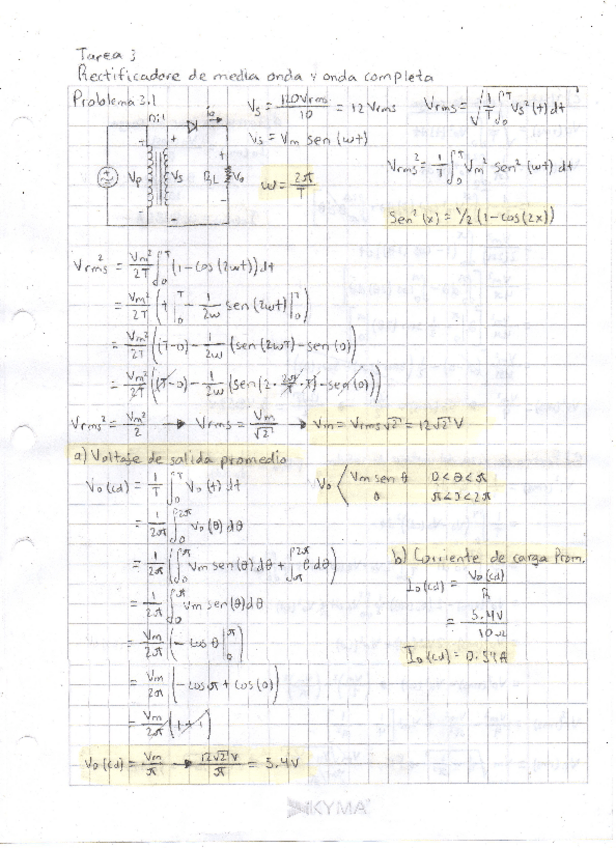 Tarea 3
Rectificadore de media onda y onda completa
Problema 3.1
Vs = 120Vrms/10 = 12 Vrms
Vrms = √(1/T ∫₀ᵀ Vs²(t) dt)
Vs = Vm sen (ωt)
n:1
io
+
Vp
Vs
RL
Vo
-
ω = 2π/T
Vrms² = 1/T ∫₀ᵀ Vm² sen² (ωt) dt
Sen² (x) = 1/2 (1 - cos(2x))
Vrms² = Vm²/2T ∫₀ᵀ (1 - cos (2ωt)) dt
= Vm²/2T (t |₀ᵀ - 1/2ω sen (2ωt) |₀ᵀ)
= Vm²/2T ((T-0) - 1/2ω (sen (2ωT) - sen (0))
= Vm²/2T ((T-0) - 1/2ω (sen (2 · 2π/T · T) - sen (0)))
Vrms² = Vm²/2 → Vrms = Vm/√2 → Vm = Vrms√2 = 12√2 V
a) Voltaje de salida promedio
Vo (cd) = 1/T ∫₀ᵀ Vo (t) dt
Vo < Vm sen θ 0<θ<π
0 π<θ<2π
= 1/2π ∫₀²π vo (θ) dθ
= 1/2π (∫₀π Vm sen (θ) dθ + ∫π²π 0 dθ)
= 1/2π ∫₀π Vm sen (θ) dθ
= Vm/2π (-cos θ |₀π)
= Vm/2π (-cos π + cos (0))
= Vm/2π (1+1)
Vo (cd) = Vm/π → 12√2 V/π = 5.4 V
b) Corriente de carga Prom.
Io (cd) = Vo (cd)/R
= 5.4V/10Ω
Io (cd) = 0.54A
KYMA